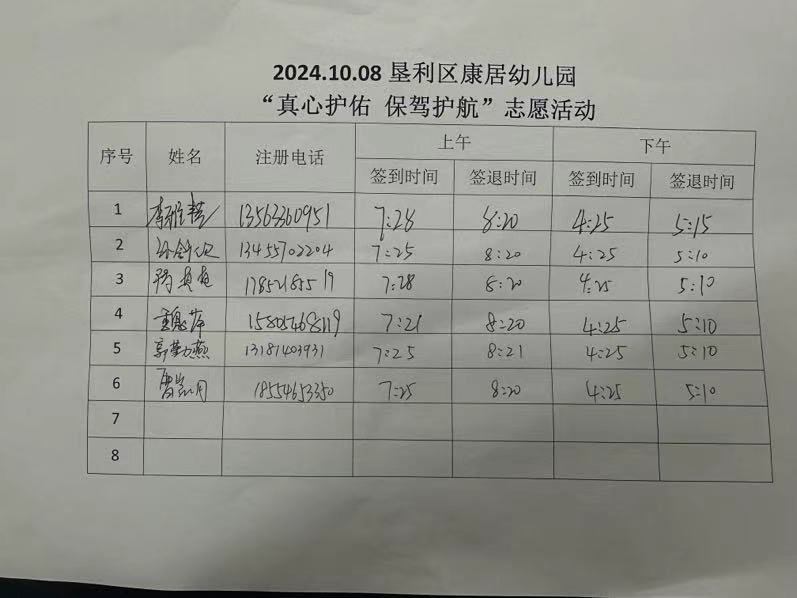 2024.10.08 垦利区康居幼儿园
“真心护佑 保驾护航”志愿活动
序号 姓名 注册电话 上午 下午
签到时间 签退时间 签到时间 签退时间
1 13563360951 7:28 8:20 4:25 5:15
2 13455702204 7:25 8:20 4:25 5:10
3 17852185519 7:28 8:20 4:25 5:10
4 15805468119 7:21 8:20 4:25 5:10
5 郭勤燕 13181403931 7:25 8:21 4:25 5:10
6 曹凯月 18554653350 7:25 8:20 4:25 5:10
7
8